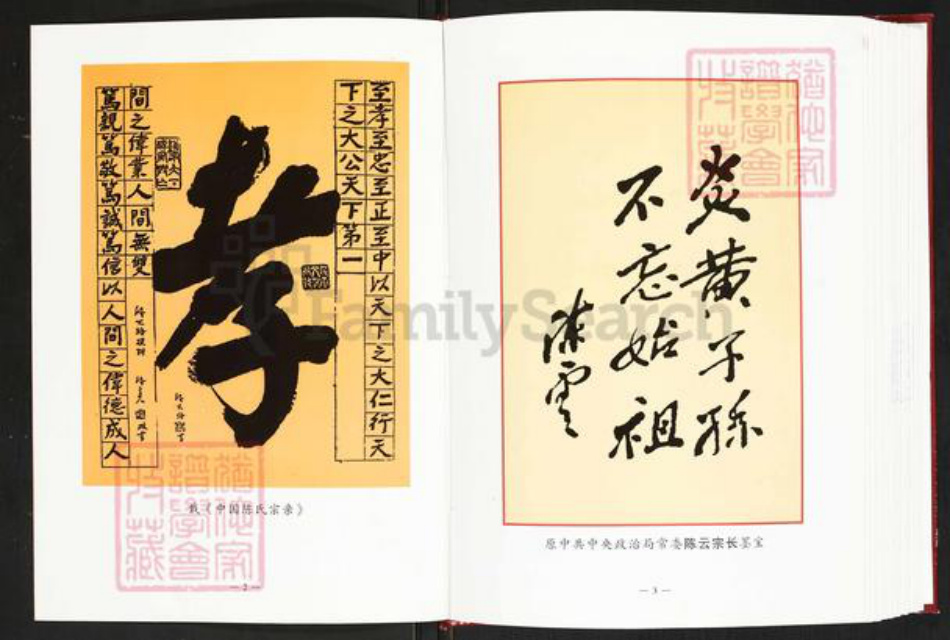 至孝至忠至正至中以天下之大仁行天
下之大公天下第一
孝
間之偉業人間無雙
篤親篤敬篤誠篤信以人間之偉德成人
载《中国陈氏宗亲》
— 2 —
炎黄子孫
不忘始祖
陈雲
原中共中央政治局常委陈云宗长墨宝
— 3 —
猶他家
譜學會
收藏
猶他家
譜學會
收藏
FamilySearch